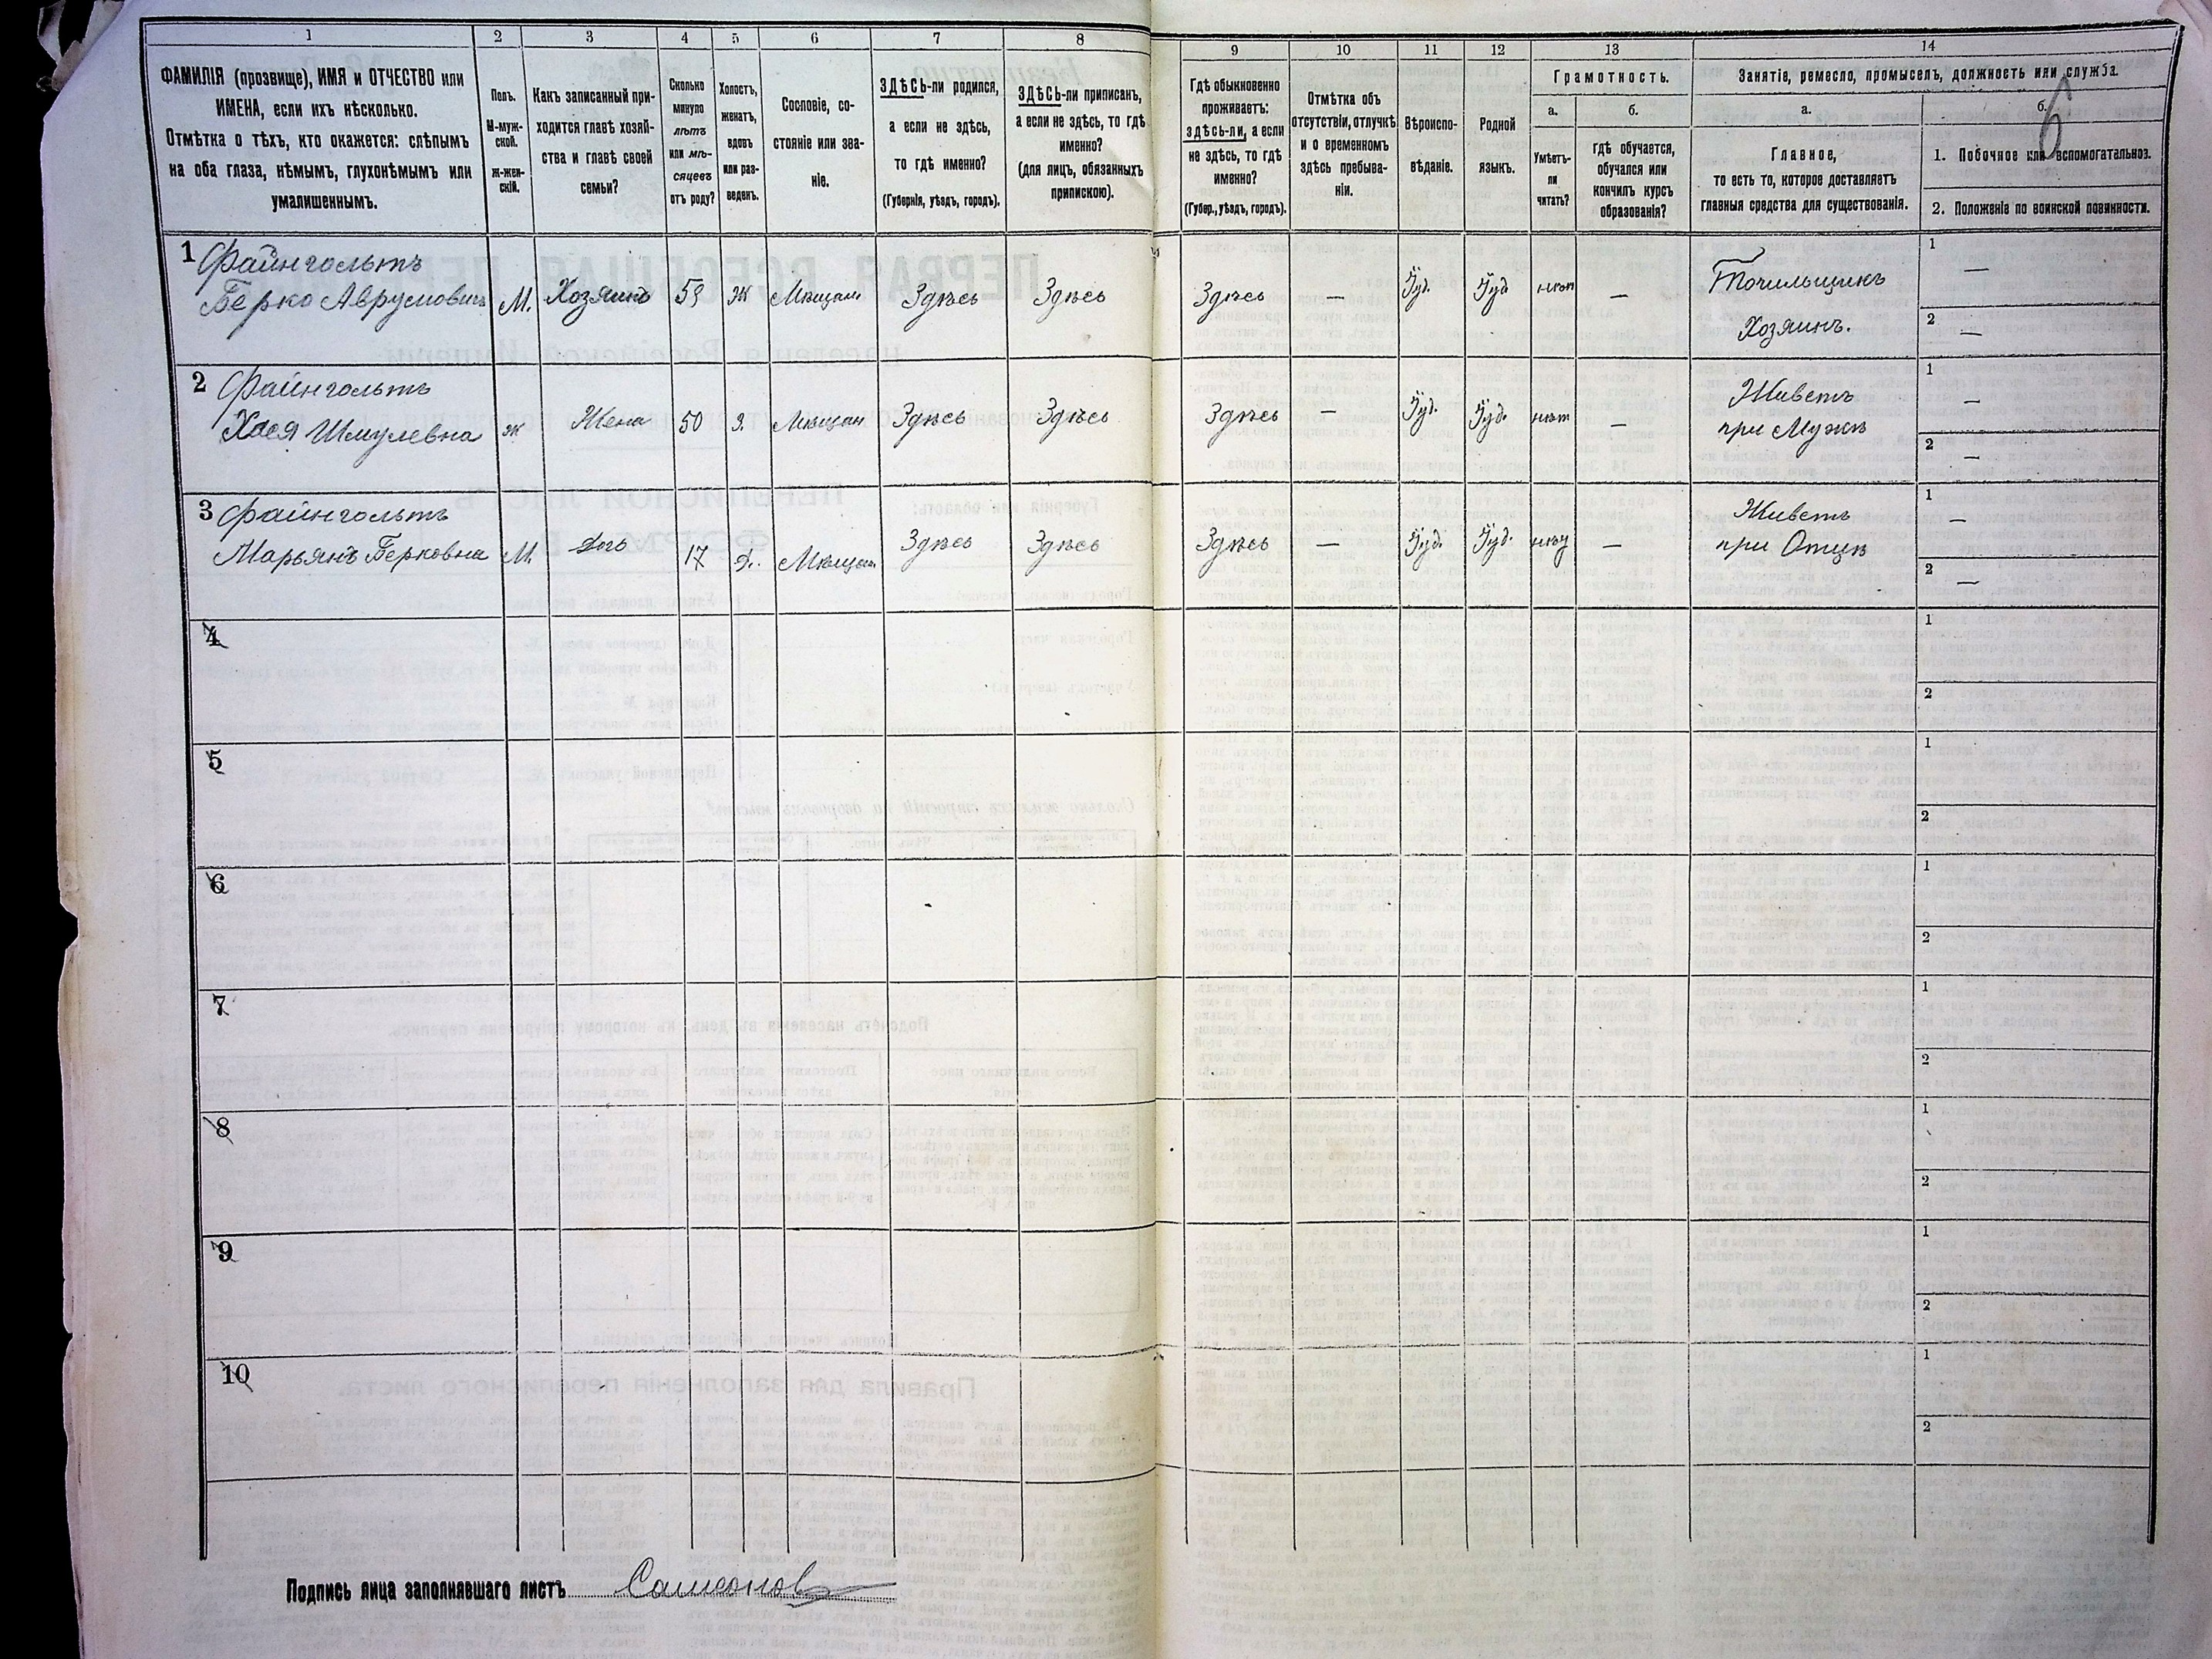 1 2 3 4 5 6 7 8 9 10 11 12 13 14
ФАМИЛІЯ (прозвище), ИМЯ и ОТЧЕСТВО или
ИМЕНА, если ихъ нѣсколько.
Отмѣтка о тѣхъ, кто окажется: слѣпымъ
на оба глаза, нѣмымъ, глухонѣмымъ или
умалишеннымъ.
Полъ.
М-муж-
ской.
Ж-жен-
скій.
Какъ записанный при-
ходится главѣ хозяй-
ства и главѣ своей
семьи?
Сколько
минуло
лѣтъ
или мѣ-
сяцевъ
отъ роду?
Холостъ,
женатъ,
вдовъ
или раз-
веденъ.
Сословіе, со-
стояніе или зва-
ніе.
ЗДѢСЬ-ли родился,
а если не здѣсь,
то гдѣ именно?
(Губернія, уѣздъ, городъ).
ЗДѢСЬ-ли приписанъ,
а если не здѣсь, то гдѣ
именно?
(для лицъ, обязанныхъ
припискою).
Гдѣ обыкновенно
проживаетъ:
здѣсь-ли, а если
не здѣсь, то гдѣ
именно?
(Губер., уѣздъ, городъ).
Отмѣтка объ
отсутствіи, отлучкѣ
и о временномъ
здѣсь пребыва-
ніи.
Вѣроиспо-
вѣданіе.
Родной
языкъ.
Грамотность.
а.
Умѣетъ-
ли
читать?
б.
гдѣ обучается,
обучался или
кончилъ курсъ
образованія?
Занятіе, ремесло, промыселъ, должность или служба.
а.
Главное,
то есть то, которое доставляетъ
главныя средства для существованія.
б.
6
1. Побочное или вспомогательное.
2. Положеніе по воинской повинности.
1 Файнгольтъ
Берко Аврумовичъ М. Хозяинъ 59 Ж Мѣщан Здѣсь Здѣсь Здѣсь — Іуд. Іуд нѣт — Точильщикъ
Хозяинъ.
1 —
2 —
2 Файнгольтъ
Хася Шмулевна ж Жена 50 З. Мѣщан Здѣсь Здѣсь Здѣсь — Іуд. Іуд. нѣт — Живетъ
при Мужѣ
1 —
2 —
3 Файнгольтъ
Марьянъ Берковна М. Дочь 17 Д. Мѣщан Здѣсь Здѣсь Здѣсь — Іуд. Іуд. — Живетъ
при Отцѣ
1 —
2 —
4
1
2
5
1
2
6
1
2
7
1
2
8
1
2
9
1
2
10
1
2
Подпись лица заполнявшаго листъ Самсонов